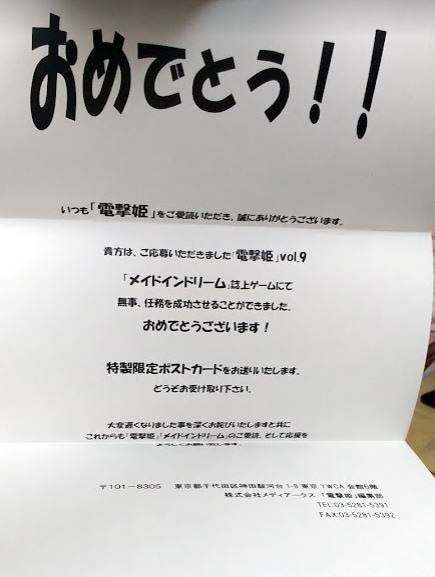 おめでとう!!
いつも「電撃姫」をご愛読いただき、誠にありがとうございます。
貴方は、ご応募いただきました「電撃姫」vol.9
「メイドインドリーム」誌上ゲームにて
無事、任務を成功させることができました。
おめでとうございます!
特製限定ポストカードをお送りいたします。
どうぞお受け取り下さい。
大変遅くなりました事を深くお詫びいたしますと共に
これからも「電撃姫」「メイドインドリーム」のご愛読、そして応援を
〒101-8305 東京都千代田区神田駿河台1-8 東京YWCA会館6階
株式会社メディアークス 「電撃姫」編集部
TEL:03-5281-5391
FAX:03-5281-5392